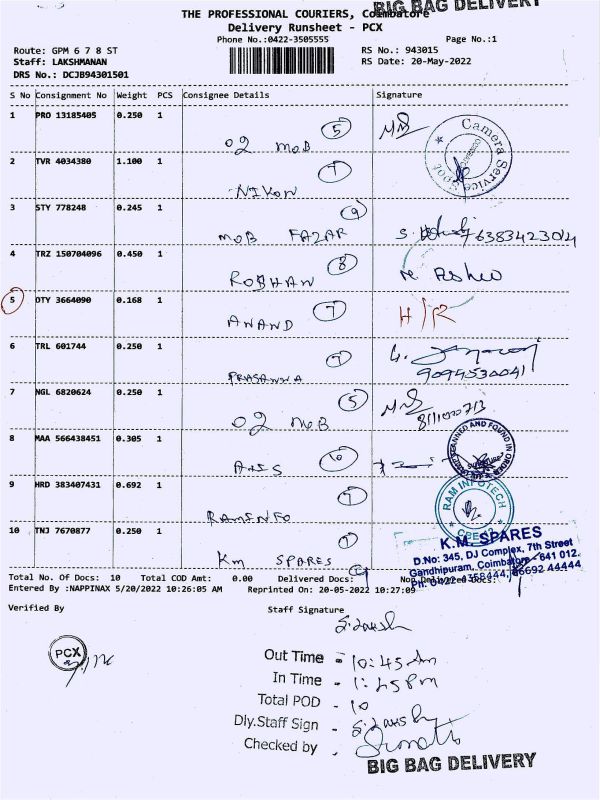 BIG BAG DELIVERY
THE PROFESSIONAL COURIERS, Coimbatore
Delivery Runsheet - PCX
Phone No.:0422-3505555 Page No.:1
Route: GPM 6 7 8 ST RS No.: 943015
Staff: LAKSHMANAN RS Date: 20-May-2022
DRS No.: DCJB94301501
S No Consignment No Weight PCS Consignee Details Signature
1 PRO 13185405 0.250 1 O2 MOB 5
Camera Service Spot
2 TVR 4034380 1.100 1 NIKON
3 STY 778248 0.245 1 MOB FAZAR 9 6383423044
4 TRZ 150704096 0.450 1 ROSHAN 8
5 OTY 3664090 0.168 1 ANAND 7 H/R
6 TRL 601744 0.250 1 PRASANNA 7 9094530041
7 NGL 6820624 0.250 1 O2 MOB 5
8 MAA 566438451 0.305 1 10
9 HRD 383407431 0.692 1 RAMINFO
RAM INFOTECH
10 TNJ 7670877 0.250 1 Km SPARES
K.M. SPARES
D.No: 345, DJ Complex, 7th Street
Gandhipuram, Coimbatore - 641 012.
Total No. Of Docs: 10 Total COD Amt: 0.00 Delivered Docs: Non Delivered Docs:
Entered By :NAPPINAX 5/20/2022 10:26:05 AM Reprinted On: 20-05-2022 10:27:09
Verified By Staff Signature
PCX
Out Time - 10:45 Am
In Time - 1:45 Pm
Total POD - 10
Dly.Staff Sign -
Checked by
BIG BAG DELIVERY